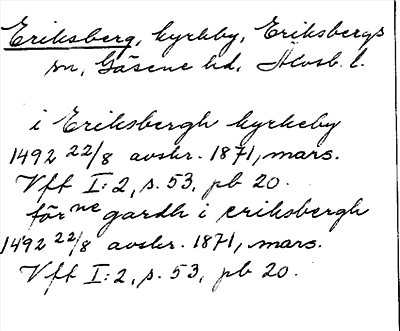 Eriksberg, kyrkby, Eriksbergs
sn, Gäsene hd, Älvsb. l.
i Eriksbergh kyrkeby
1492 22/8 avskr. 1871, mars.
Vff I:2, s. 53, pb 20.
för ne gardh i eriksbergh
1492 22/8 avskr. 1871, mars.
Vff I:2, s. 53, pb 20.